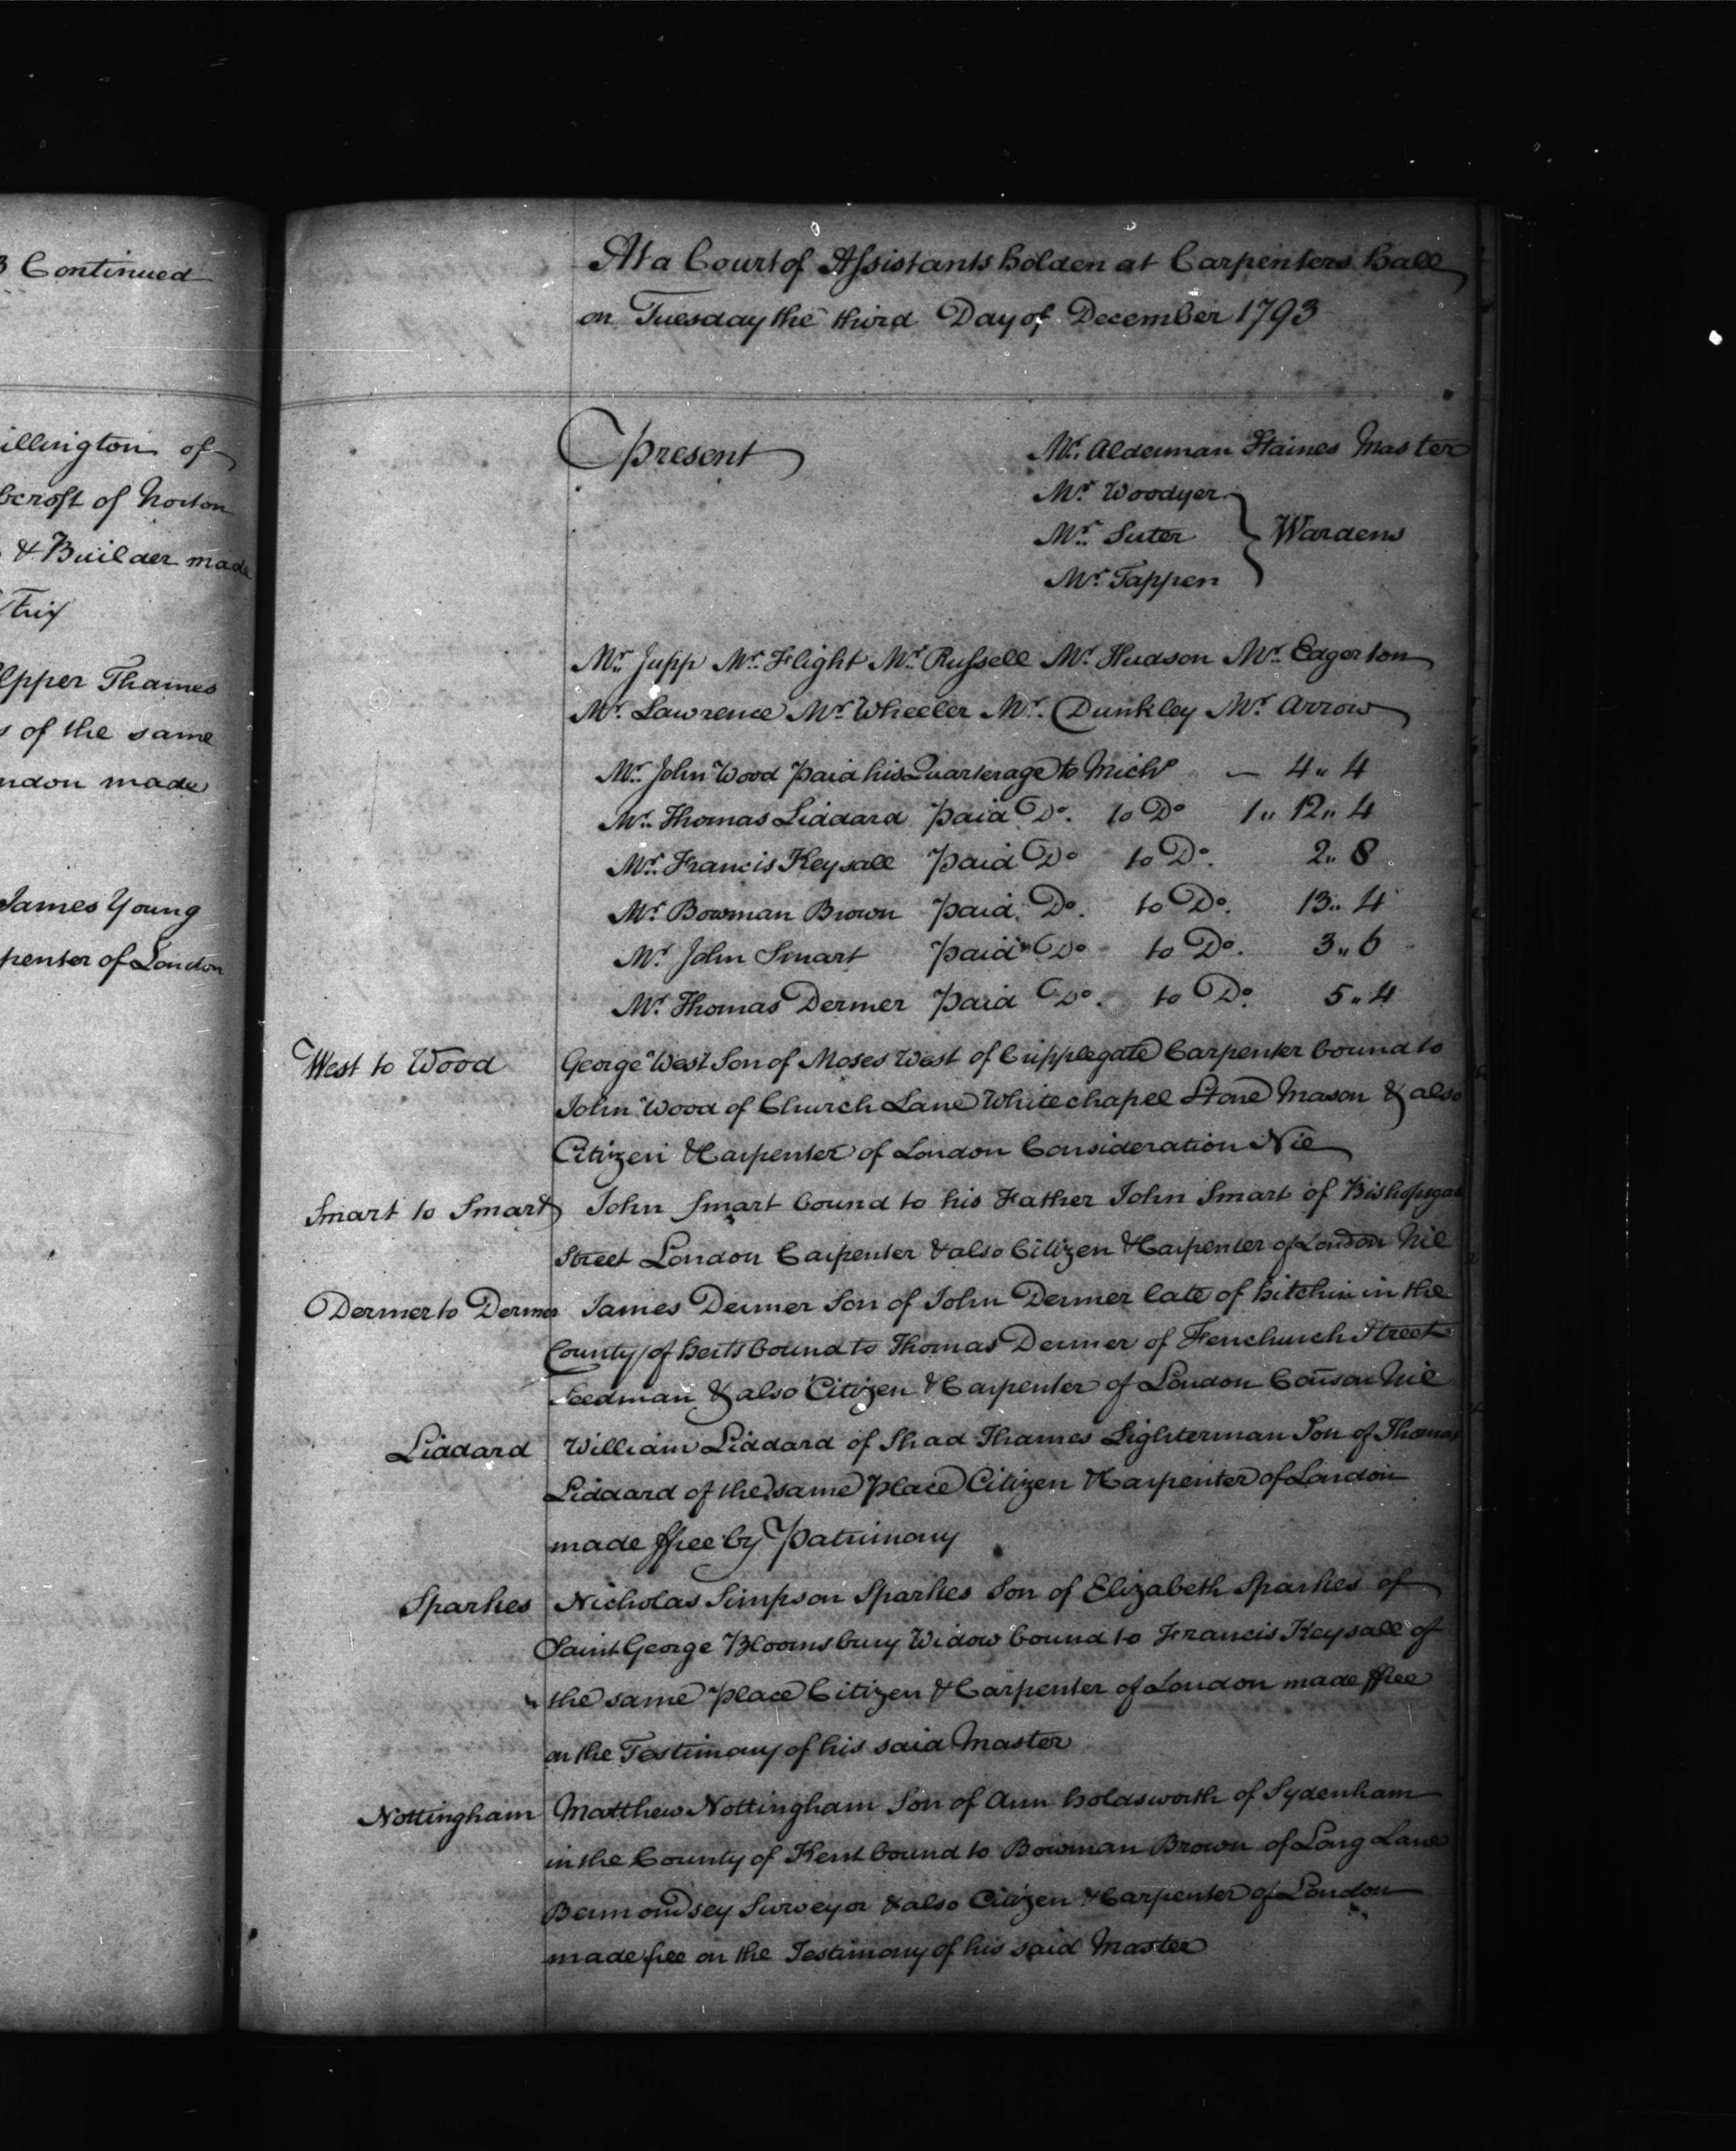 3 Continued
illington of
bcroft of Norton
& Builder made
Upper Thames
s of the same
ndon made
James Young
penter of London
At a Court of Assistants holden at Carpenters hall
on Tuesday the third Day of December 1793
Present
Mr. Alderman Haines Master
Mr. Woodyer
Mr. Suter } Wardens
Mr. Tappen
Mr. Jupp Mr. Flight Mr. Russell Mr. Hudson Mr. Eagerton
Mr. Lawrence Mr. Wheeler Mr. Dunkley Mr. Arrow
Mr. John Wood Paid his Quarterage to Michs — 4 „ 4
Mr. Thomas Liddard paid Do. to Do 1 „ 12 „ 4
Mr. Francis Keysall paid Do to Do. 2 „ 8
Mr. Bowman Brown paid Do. to Do. 13 „ 4
Mr. John Smart paid Do to Do. 3 „ 6
Mr. Thomas Dermer paid Do. to Do. 5 „ 4
West to Wood George West Son of Moses West of Cripplegate Carpenter bound to
John Wood of Church Lane Whitechapel Stone Mason & also
Citizen & Carpenter of London Consideration Nil
Smart to Smart John Smart bound to his Father John Smart of Bishopsgat
Street London Carpenter & also Citizen & Carpenter of London Nil
Dermer to Dermer James Dermer Son of John Dermer late of hitchin in the
County of herts bound to Thomas Dermer of Fenchurch Street
Seedman & also Citizen & Carpenter of London Conson Nil
Liddard William Liddard of Shad Thames Lighterman Son of Thomas
Liddard of the same place Citizen & Carpenter of London
made ffree by Patrimony
Sparkes Nicholas Simpson Sparkes Son of Elizabeth Sparkes of
Saint George Bloomsbury Widow bound to Francis Keysall of
the same place Citizen & Carpenter of London made ffree
on the Testimony of his said Master
Nottingham Matthew Nottingham Son of Ann holdsworth of Sydenham
in the County of Kent bound to Bowman Brown of Long Lane
Bermondsey Surveyor & also Citizen & Carpenter of London
made free on the Testimony of his said Master